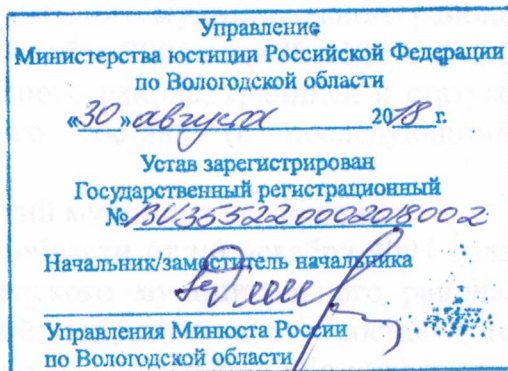 Управление
Министерства юстиции Российской Федерации
по Вологодской области
«30» августа 2018 г.
Устав зарегистрирован
Государственный регистрационный
№ RU355220002018002
Начальник/заместитель начальника
Управления Минюста России
по Вологодской области